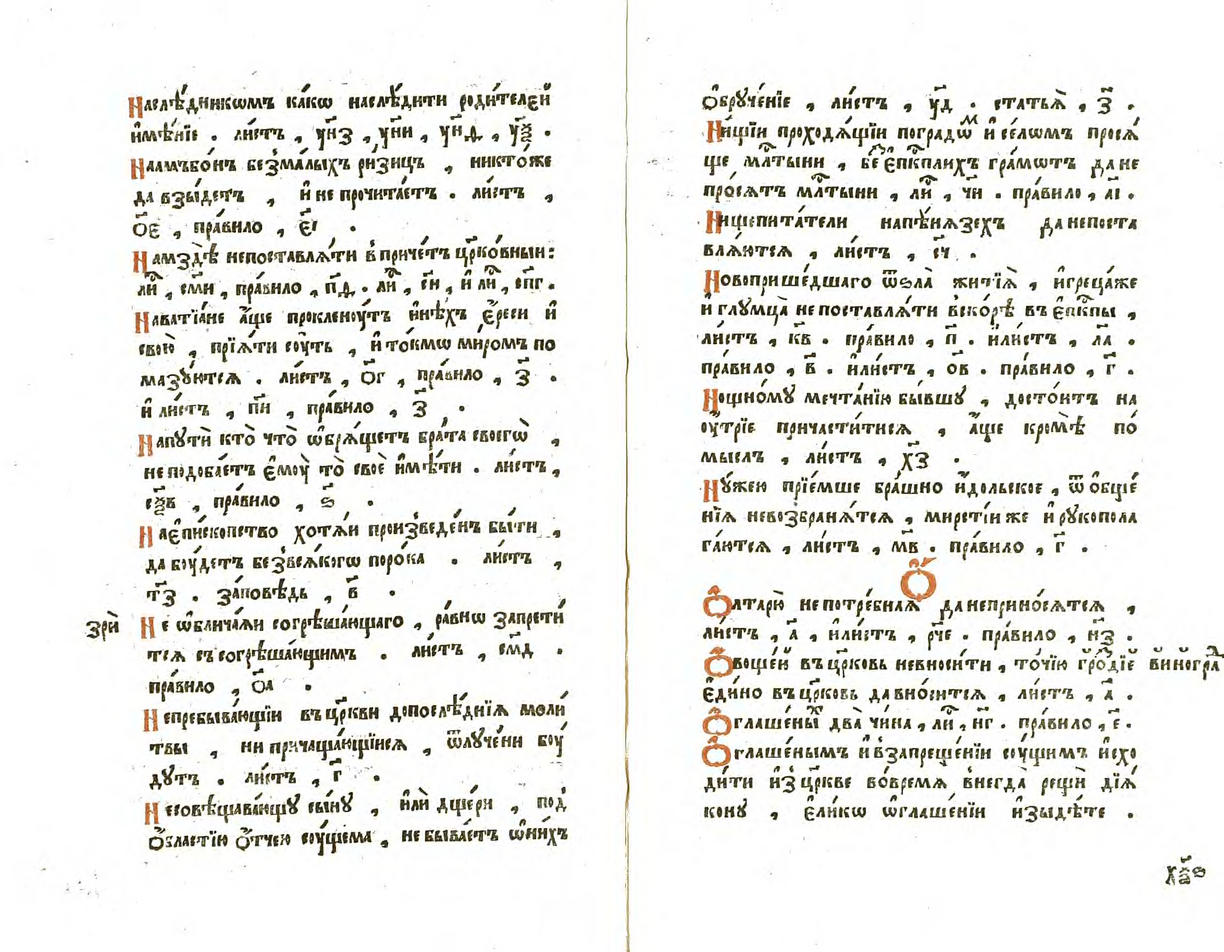 Наслѣ́дникѡмъ ка́кѡ наслѣ́дити роди́телєй
и҆мѣ́нїе . ли́стъ , у҃нз , у҃ни , у҃нд , у҃ѯ .
Наамъво́нъ без̾ма́лыхъ ри́зицъ , никто́же
да взы́детъ , и҆ не прочита́етъ . ли́стъ ,
о҃е , пра́вило , є҃і .
Намздѣ̀ непоставлѧ́ти в̾при́четъ цр҃ко́вныи :
ли́ , с҃ми , пра́вило , п҃д . ли́ , с҃н , и҆ ли́ , с҃пг .
Наватїа́не а҆́ще прокленоу́тъ и҆нѣ́хъ є҆́реси и҆
свою̀ , прїѧ́ти соу́ть , и҆ то́кмѡ ми́ромъ по
мазꙋ́ютсѧ . ли́стъ , о҃г , пра́вило , з҃ .
и҆ ли́стъ , п҃и , пра́вило , з҃ .
Напꙋтѝ кто̀ что̀ ѡ҆брѧ́щетъ бра́та своегѡ̀ ,
не подоба́етъ є҆моу̀ то̀ своѐ и҆мѣ́ти . ли́стъ ,
с҃ѯв , пра́вило , ѕ҃ .
На є҆пи́скопство хотѧ́й произведе́нъ бы́ти ,
да боу́детъ без̾всѧ́когѡ поро́ка . ли́стъ ,
т҃з . за́повѣдь , в҃ .
зрѝ
Не ѡ҆блича́ѧй согрѣша́ющаго , ра́внѡ запрети́
тсѧ съ согрѣша́ющимъ . ли́стъ , с҃мд .
пра́вило , о҃а .
Непребыва́ющїи въ цр҃кви допослѣ́днїѧ моли́
твы , ни причаща́ющїисѧ , ѿлꙋче́ни боу́
дꙋтъ . ли́стъ , г҃ .
Несовѣщава́ющꙋ сы́нꙋ , и҆лѝ дще́ри , под̾
ѻ҆́властїю ѻ҆́тчею соу́щема , не быва́етъ ѡ҆ ни́хъ
ѻ҆брꙋче́нїе , ли́стъ , у҃д . статьѧ̀ , з҃ .
Ни́щїи проходѧ́щїи погра́дѡм и҆ се́лѡмъ просѧ́
ще мл҃тыни , бе є҆пⷭ҇кплихъ гра́мѡтъ да не
про́сѧтъ мл҃тыни , ли́ , ч҃и . пра́вило , а҃і .
Нищепита́тели напѣ́нѧзехъ да непоста
влѧ́ютсѧ , ли́стъ , с҃ч .
Новоприше́дшаго ѿѕла̀ житїѧ̀ , и҆ грецаже
и҆ глꙋмца̀ не поставлѧ́ти вско́рѣ въ є҆пⷭ҇кпы ,
ли́стъ , к҃в . пра́вило , п҃ . и҆ ли́стъ , л҃а .
пра́вило , в҃ . и҆ ли́стъ , о҃в . пра́вило , г҃ .
Нощно́мꙋ мечта́нїю бы́вшꙋ , досто́итъ на
оу҆́трїе причасти́тисѧ , а҆́ще кромѣ̀ по́
мыслъ , ли́стъ , х҃з .
Нꙋ́жею прїе́мше бра́шно и҆́дольское , ѿ ѻ҆бще́
нїѧ невозбранѧ́тсѧ , мирстїи же и҆ рꙋкопола
га́ютсѧ , ли́стъ , м҃в . пра́вило , г҃ .
Ѻ҆́
Ѻ҆лтарю̀ не потре́бнаѧ да неприно́сѧтсѧ ,
ли́стъ , а҃ , и҆ ли́стъ , р҃че . пра́вило , н҃з .
Ѻ҆воще́й въ цр҃ковь невноси́ти , то́чїю гро́здїе виногра
є҆ди́но въ цр҃ковь да вно́ситсѧ , ли́стъ , а҃ .
Ѻ҆глаше́ны два̀ чи́на , ли́ , н҃г . пра́вило , е҃ .
Ѻ҆глаше́нымъ и҆ в̾запреще́нїи соу́щимъ и҆схо
ди́ти и҆з̾ цр҃кве во́времѧ внегда̀ рещѝ дїѧ́
конꙋ , є҆ли́кѡ ѡ҆глаше́нїи и҆зыдѣ́те .